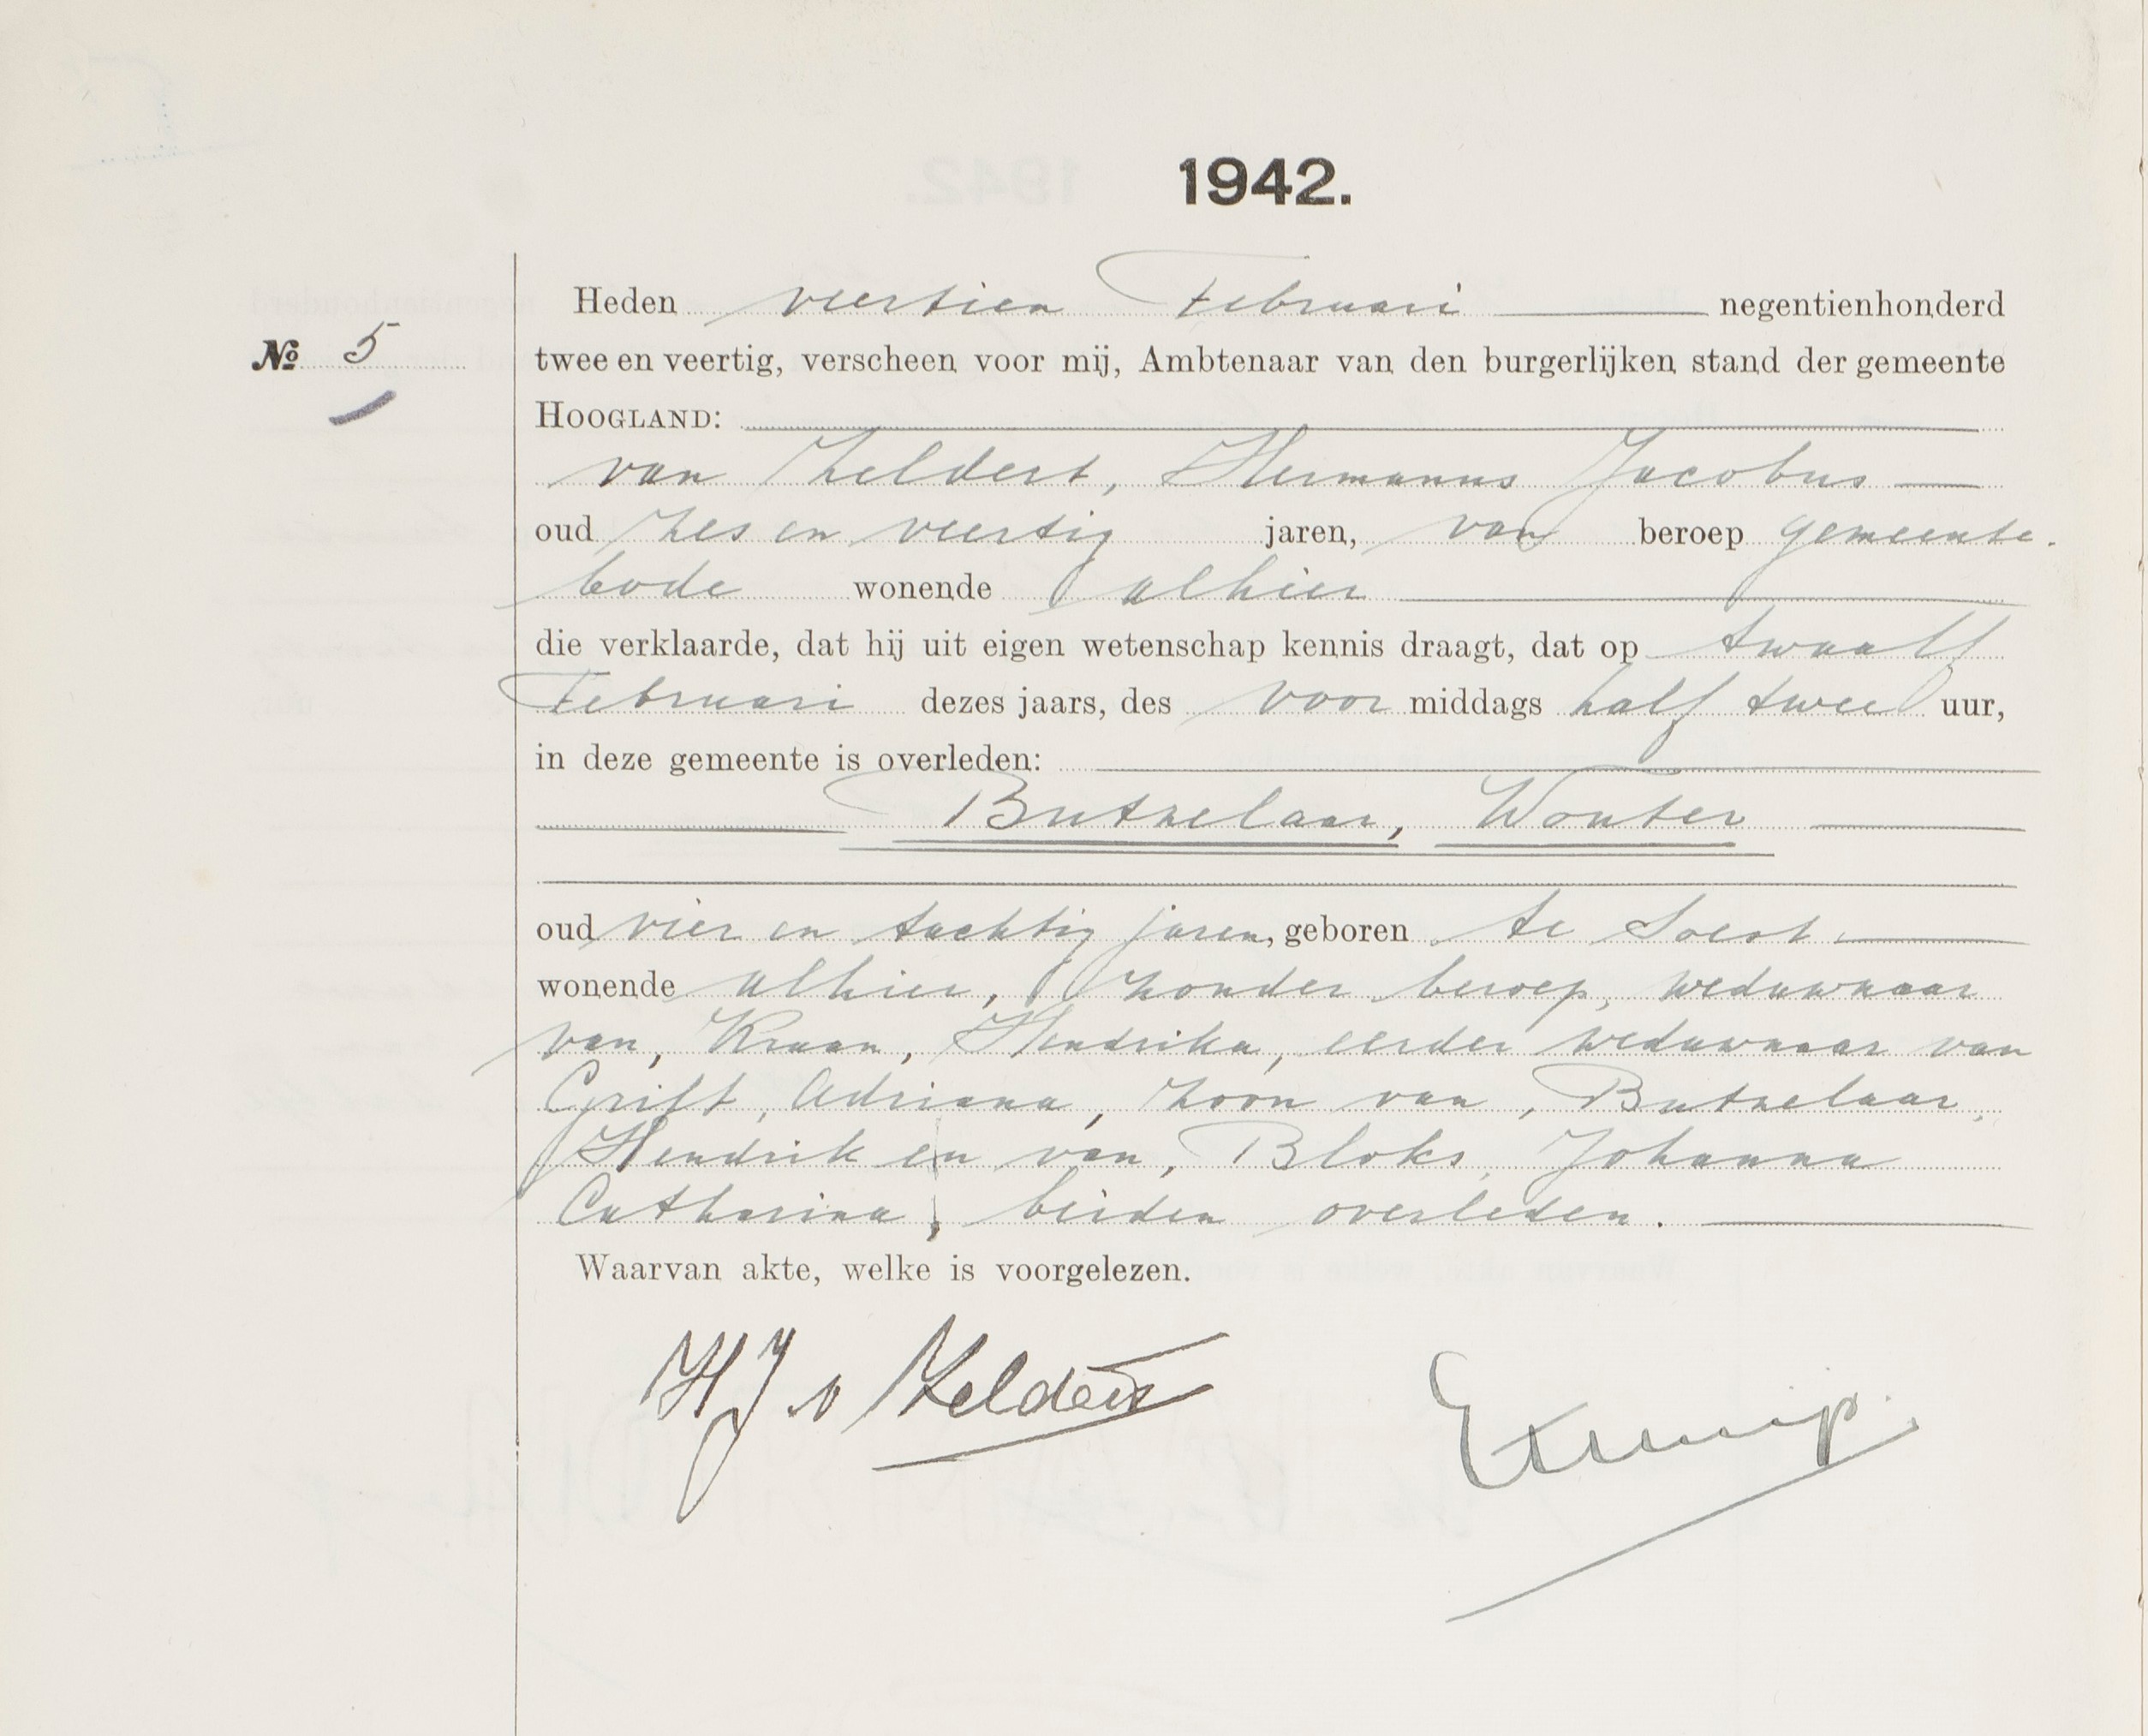 1942.
Heden veertien Februari negentienhonderd
№ 5
twee en veertig, verscheen voor mij, Ambtenaar van den burgerlijken stand der gemeente
HOOGLAND:
van Zeldert, Hermanus Jacobus
oud zes en veertig jaren, van beroep gemeente-
bode wonende alhier
die verklaarde, dat hij uit eigen wetenschap kennis draagt, dat op twaalf
Februari dezes jaars, des voor middags half twee uur,
in deze gemeente is overleden:
Butzelaar, Wouter
oud vier en tachtig jaren, geboren te Soest
wonende alhier, zonder beroep, weduwnaar
van, Kraan, Hendrika, eerder weduwnaar van
Grift, Adriana, zoon van, Butzelaar,
Hendrik en van, Bloks, Johanna
Catharina, beiden overleden.
Waarvan akte, welke is voorgelezen.
HJ v Zeldert